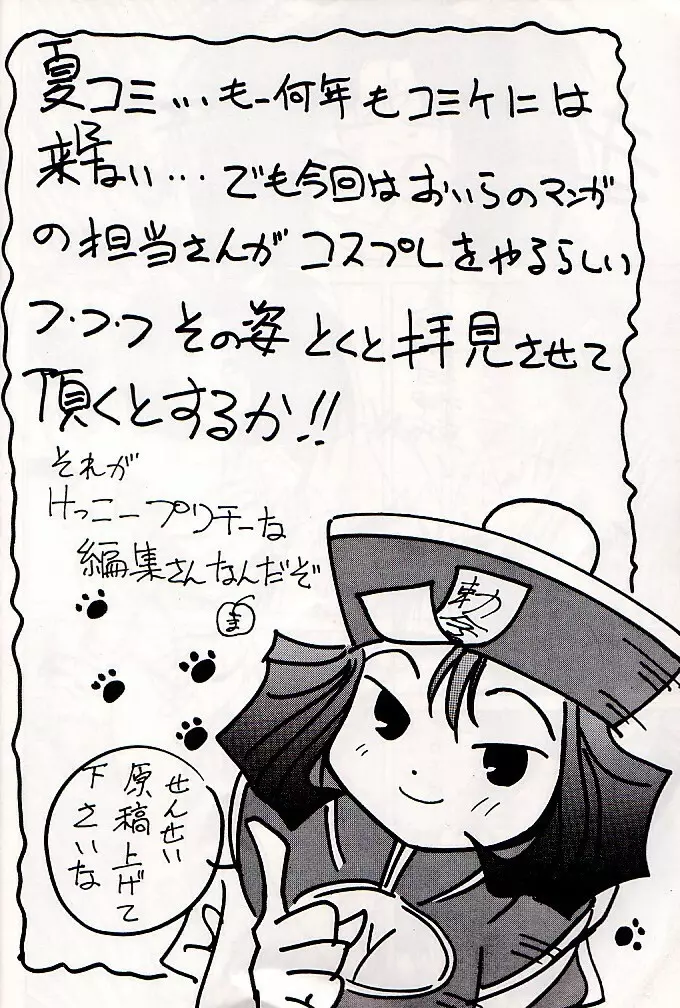 夏コミ・・・もー何年もコミケには
来てない・・・でも今回はおいらのマンガ
の担当さんがコスプレをやるらしい
フ・フ・フ その姿とくと拝見させて
頂くとするか!!
それが
けっこープリチーな
編集さんなんだぞ
ま
勅令
せんせい
原稿上げて
下さいな